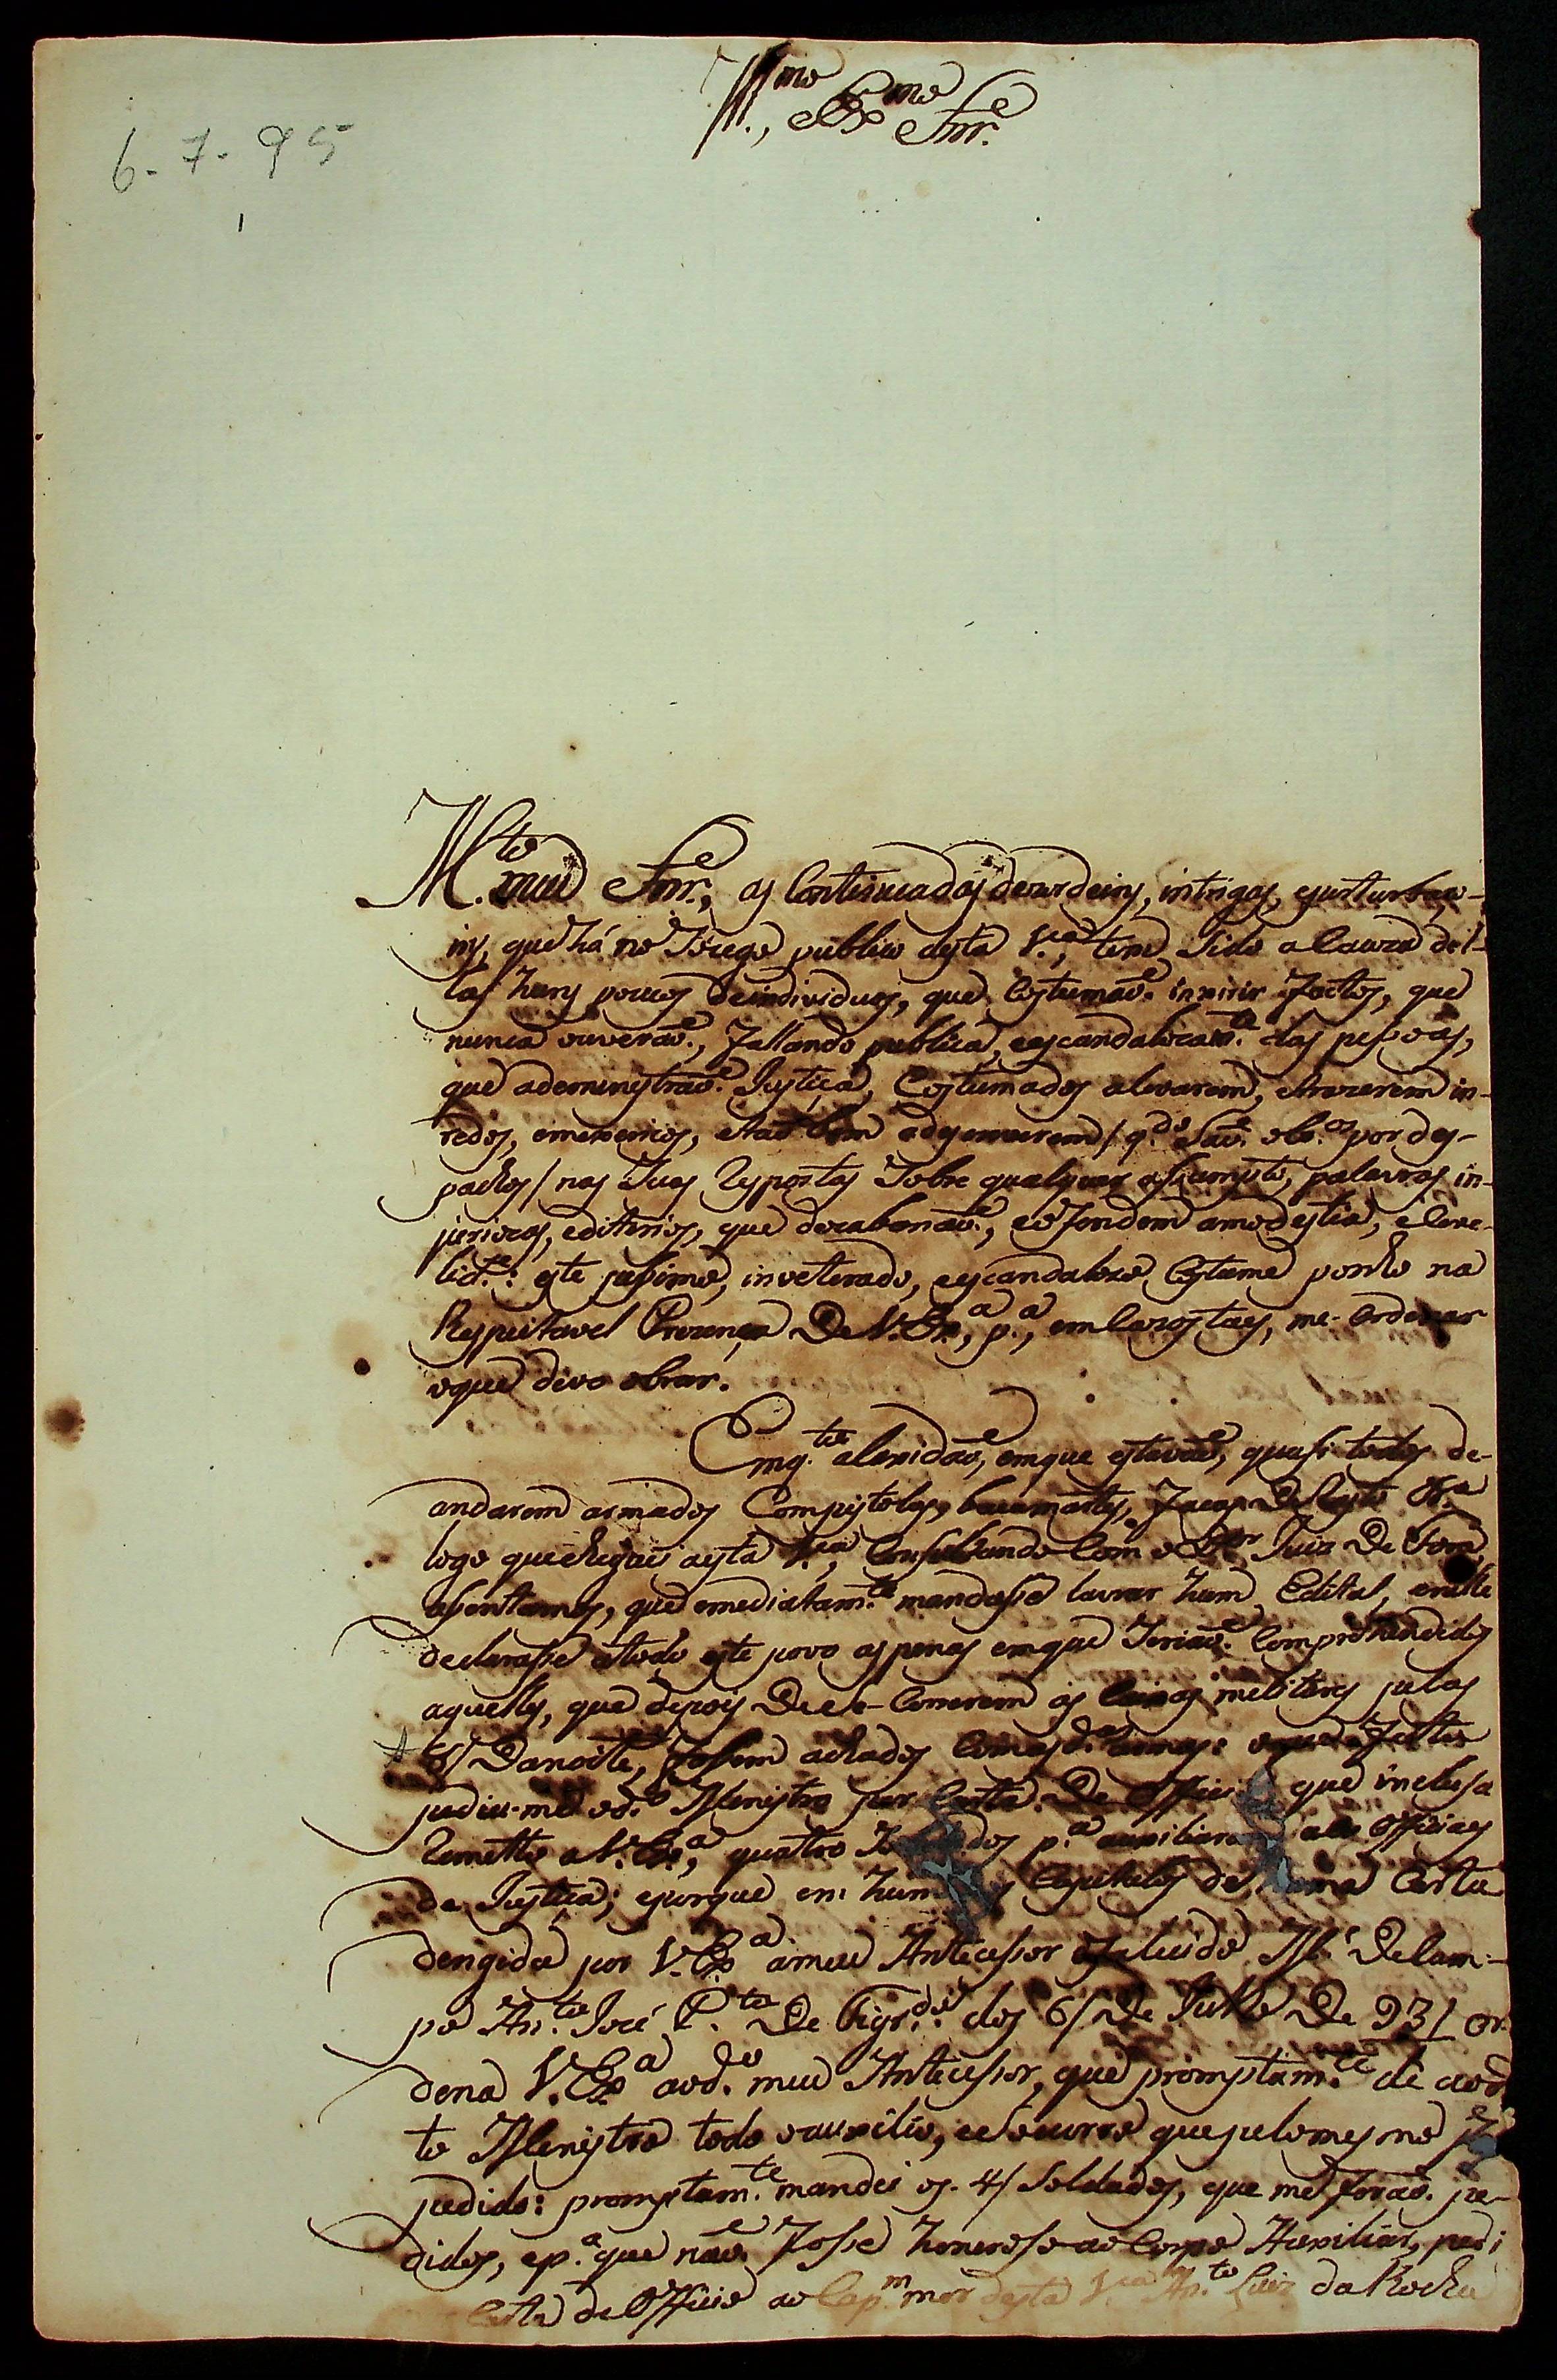 6-7-95
1
Ill.mo, e Ex.mo Snr.
M.to meu Snr., as Continuadas dezordeins, intrigas, eperturbaço-
ins, que há no Socego publico desta V.ca, tem Sido a Cauza del-
las huns poucos deindividuos, que Costumaõ. inxirir factos, que
nunca ouveraõ., fallando publica, eescandalozam.te das pessoas,
queademenistraõ. Justiça, Costumados alevarem, etrazerem in-
redos, emexericos, etaõ bem adzemverem / q.do Saõ. obr.os por des-
pachos / nas Suas Respostas Sobre qualquer assumpto, palavras in-
juriozas, editerios, que dezabonaõ., eofendem amodestia, e
lid.e: este pessimo, inveterado, eescandalozo Custume ponho na
Respeitavel Prezença De V. Ex.a, p.a, em Cazos taes, me-ordenar
oque devo obrar.
Emq.to alaxidaõ, emque estavaõ, quasi todos de-
andarem armados Compistolas, bacamartes, facas De
logo quecheguei aesta V.ca, Consultando Com o D.or Juiz De Fora,
assentamos, que emediatam.te mandasse lavrar hum Edital, enelle
declarasse atodo este povo aspenas emque Seriaõ. Comprehendidos
aquelles, que depois De se-Correrem as Caixas melitares pelas
8/ Danoite, fossem achados Comas d.as armas: oque feito
pediu-me od.o Menistro por Carta De Officio que incluza
Remetto a V. Ex.a, quatro Soldados p.a auxiliarem aos Officiaes
da Justiça; eporque em hum Capitulos de huma Carta
derigida por V. Ex.a ameu Antecessor falecido M.e DeCam-
po An.to José P.to De Figr.do dos 6/ De Julho De 93/ or
dena V. Ex.a aod.o meu Antecessor, que promptam.te dê aod.
to Menistro todo oauxilio, eSocorro quepelomesmo f
pedido: promptam.te mandei os 4/ Soldados, que me foraõ. pe-
didos, ep.a que naõ. fosse honerozo ao Corpo Auxiliar, pedi
Carta de Officio ao Cap.m mor desta V.ca An.to Luiz da Rocha